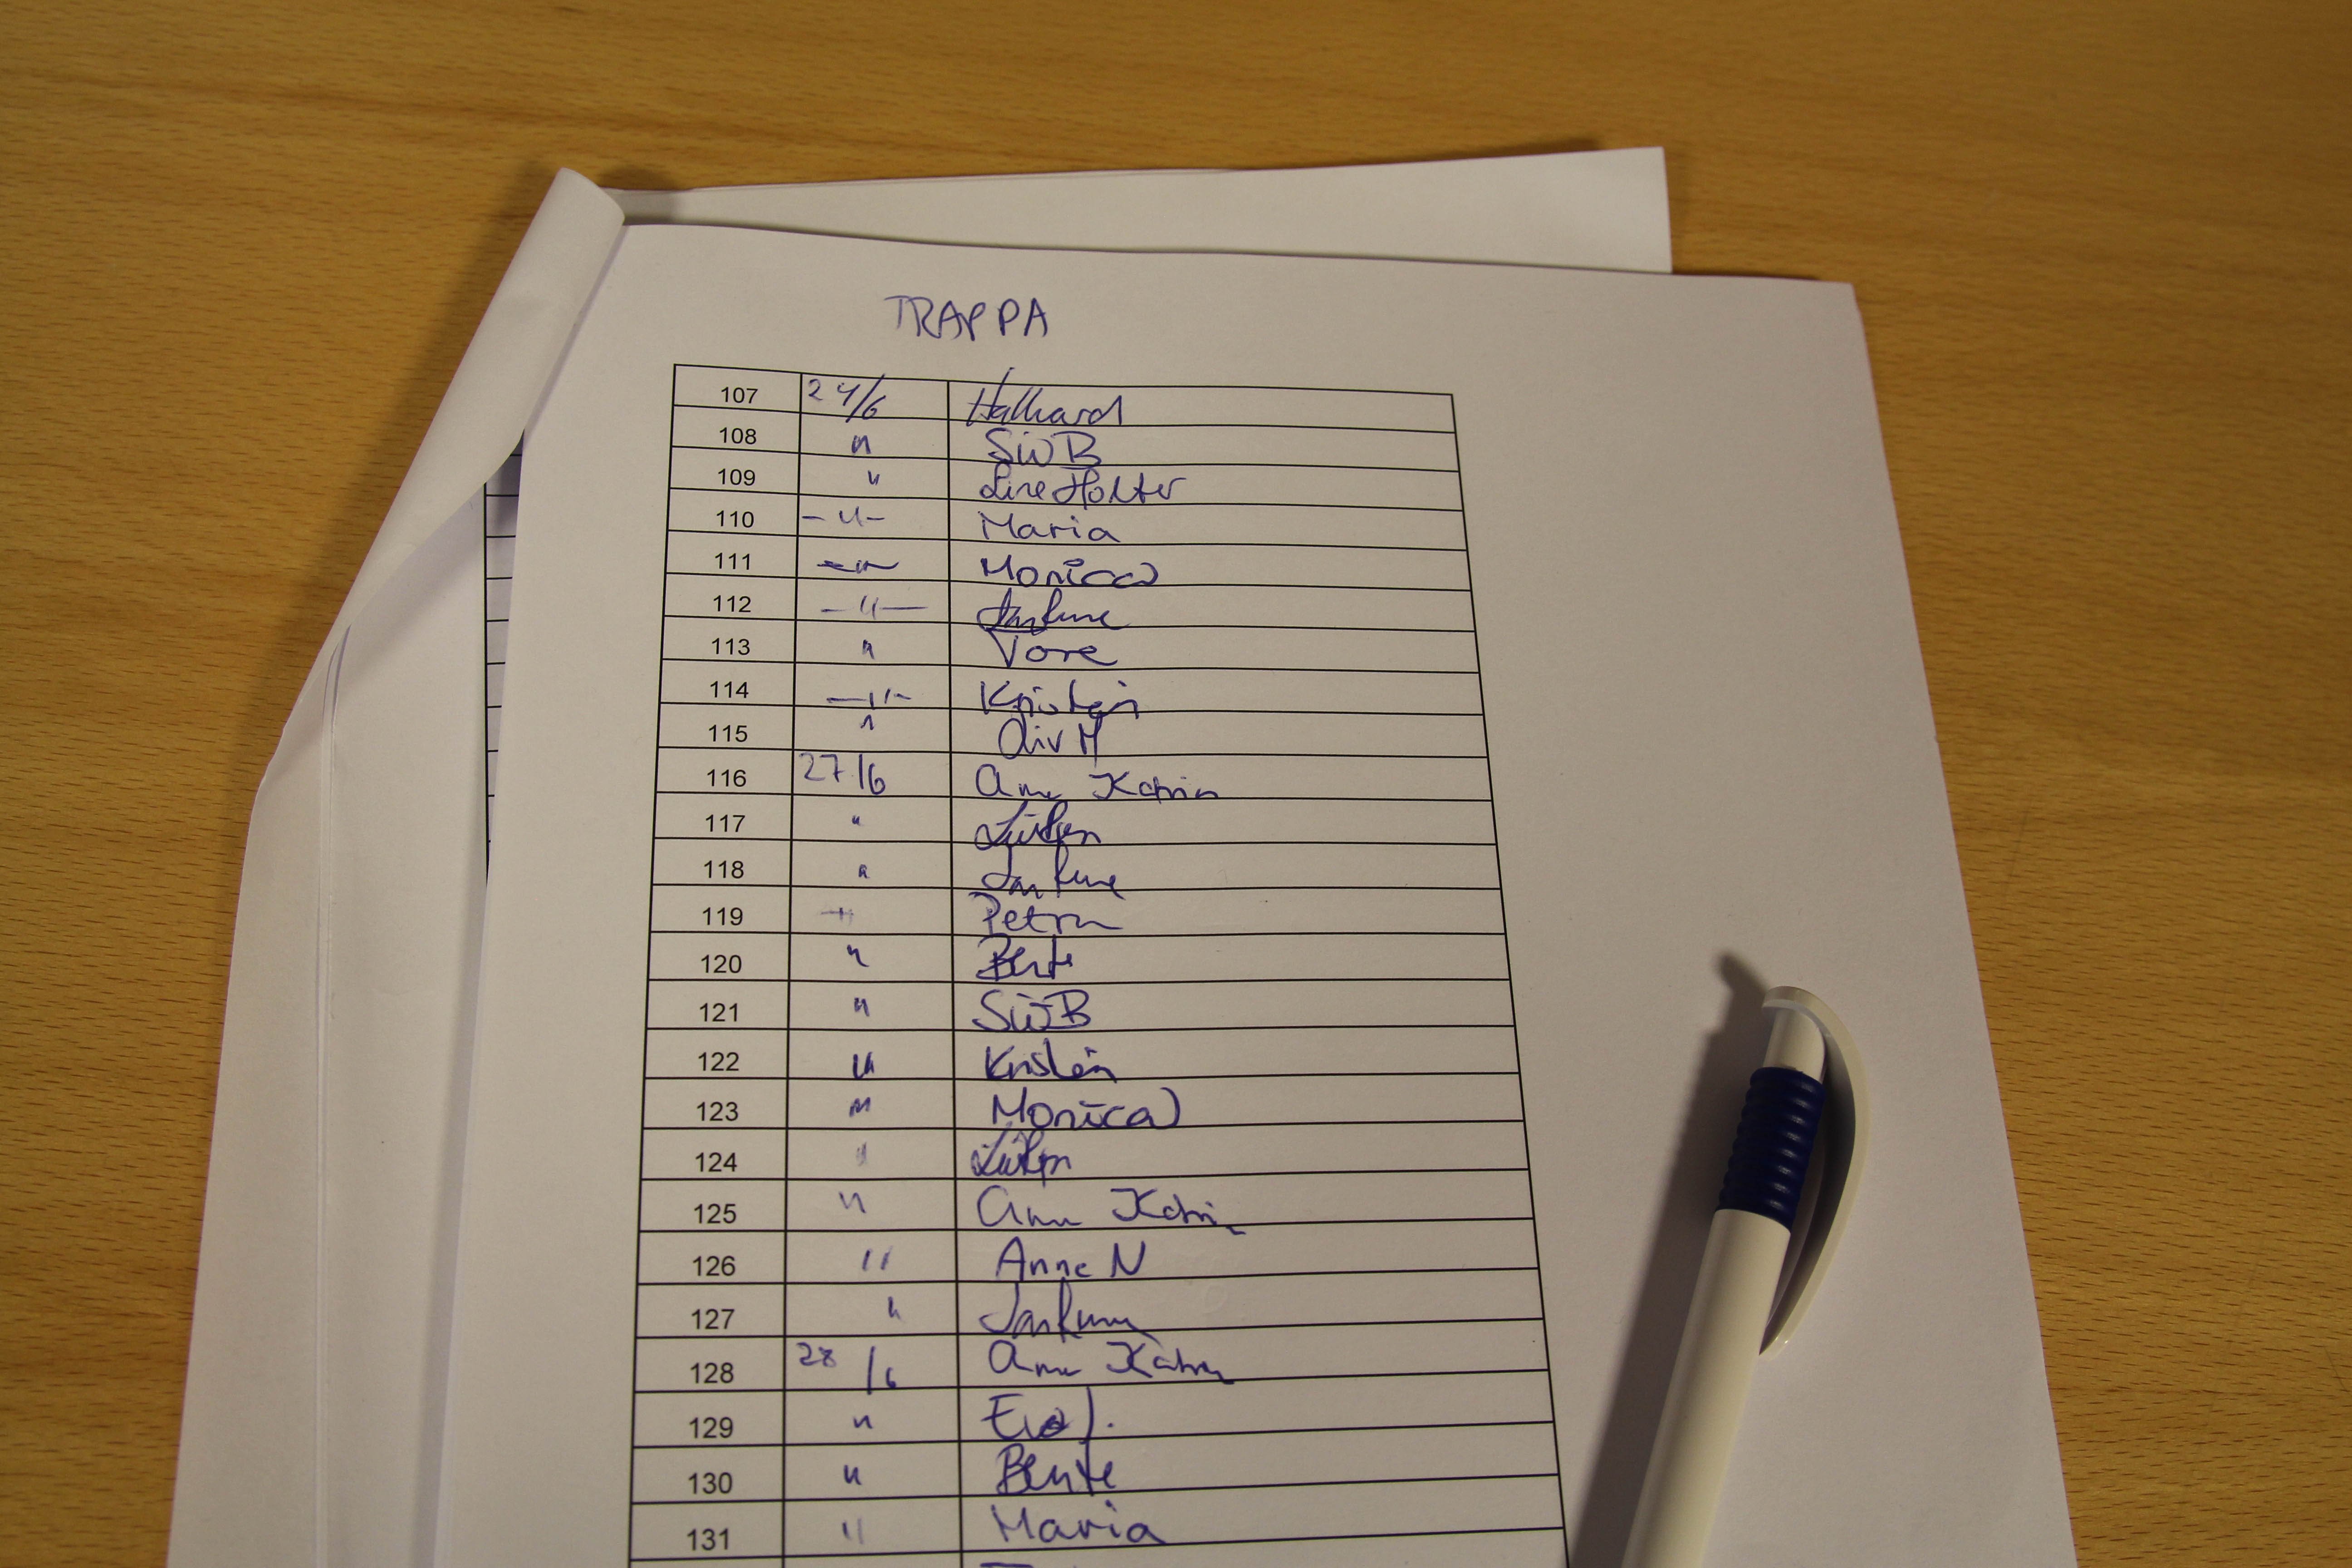 TRAPPA
107 24/6 Hallvard
108 " Siv B
109 " Line Holter
110 -"- Maria
111 -"- Monica
112 -"-
113 " Tore
114 -"- Kristin
115 " Oliv M
116 27/6 Anne Katrin
117 "
118 "
119 -"- Petra
120 " Bente
121 " Siv B
122 " Kristin
123 " Monica
124 "
125 " Anne Katrin
126 " Anne N
127 "
128 28/6 Anne Katrin
129 " Eva J.
130 " Bente
131 " Maria